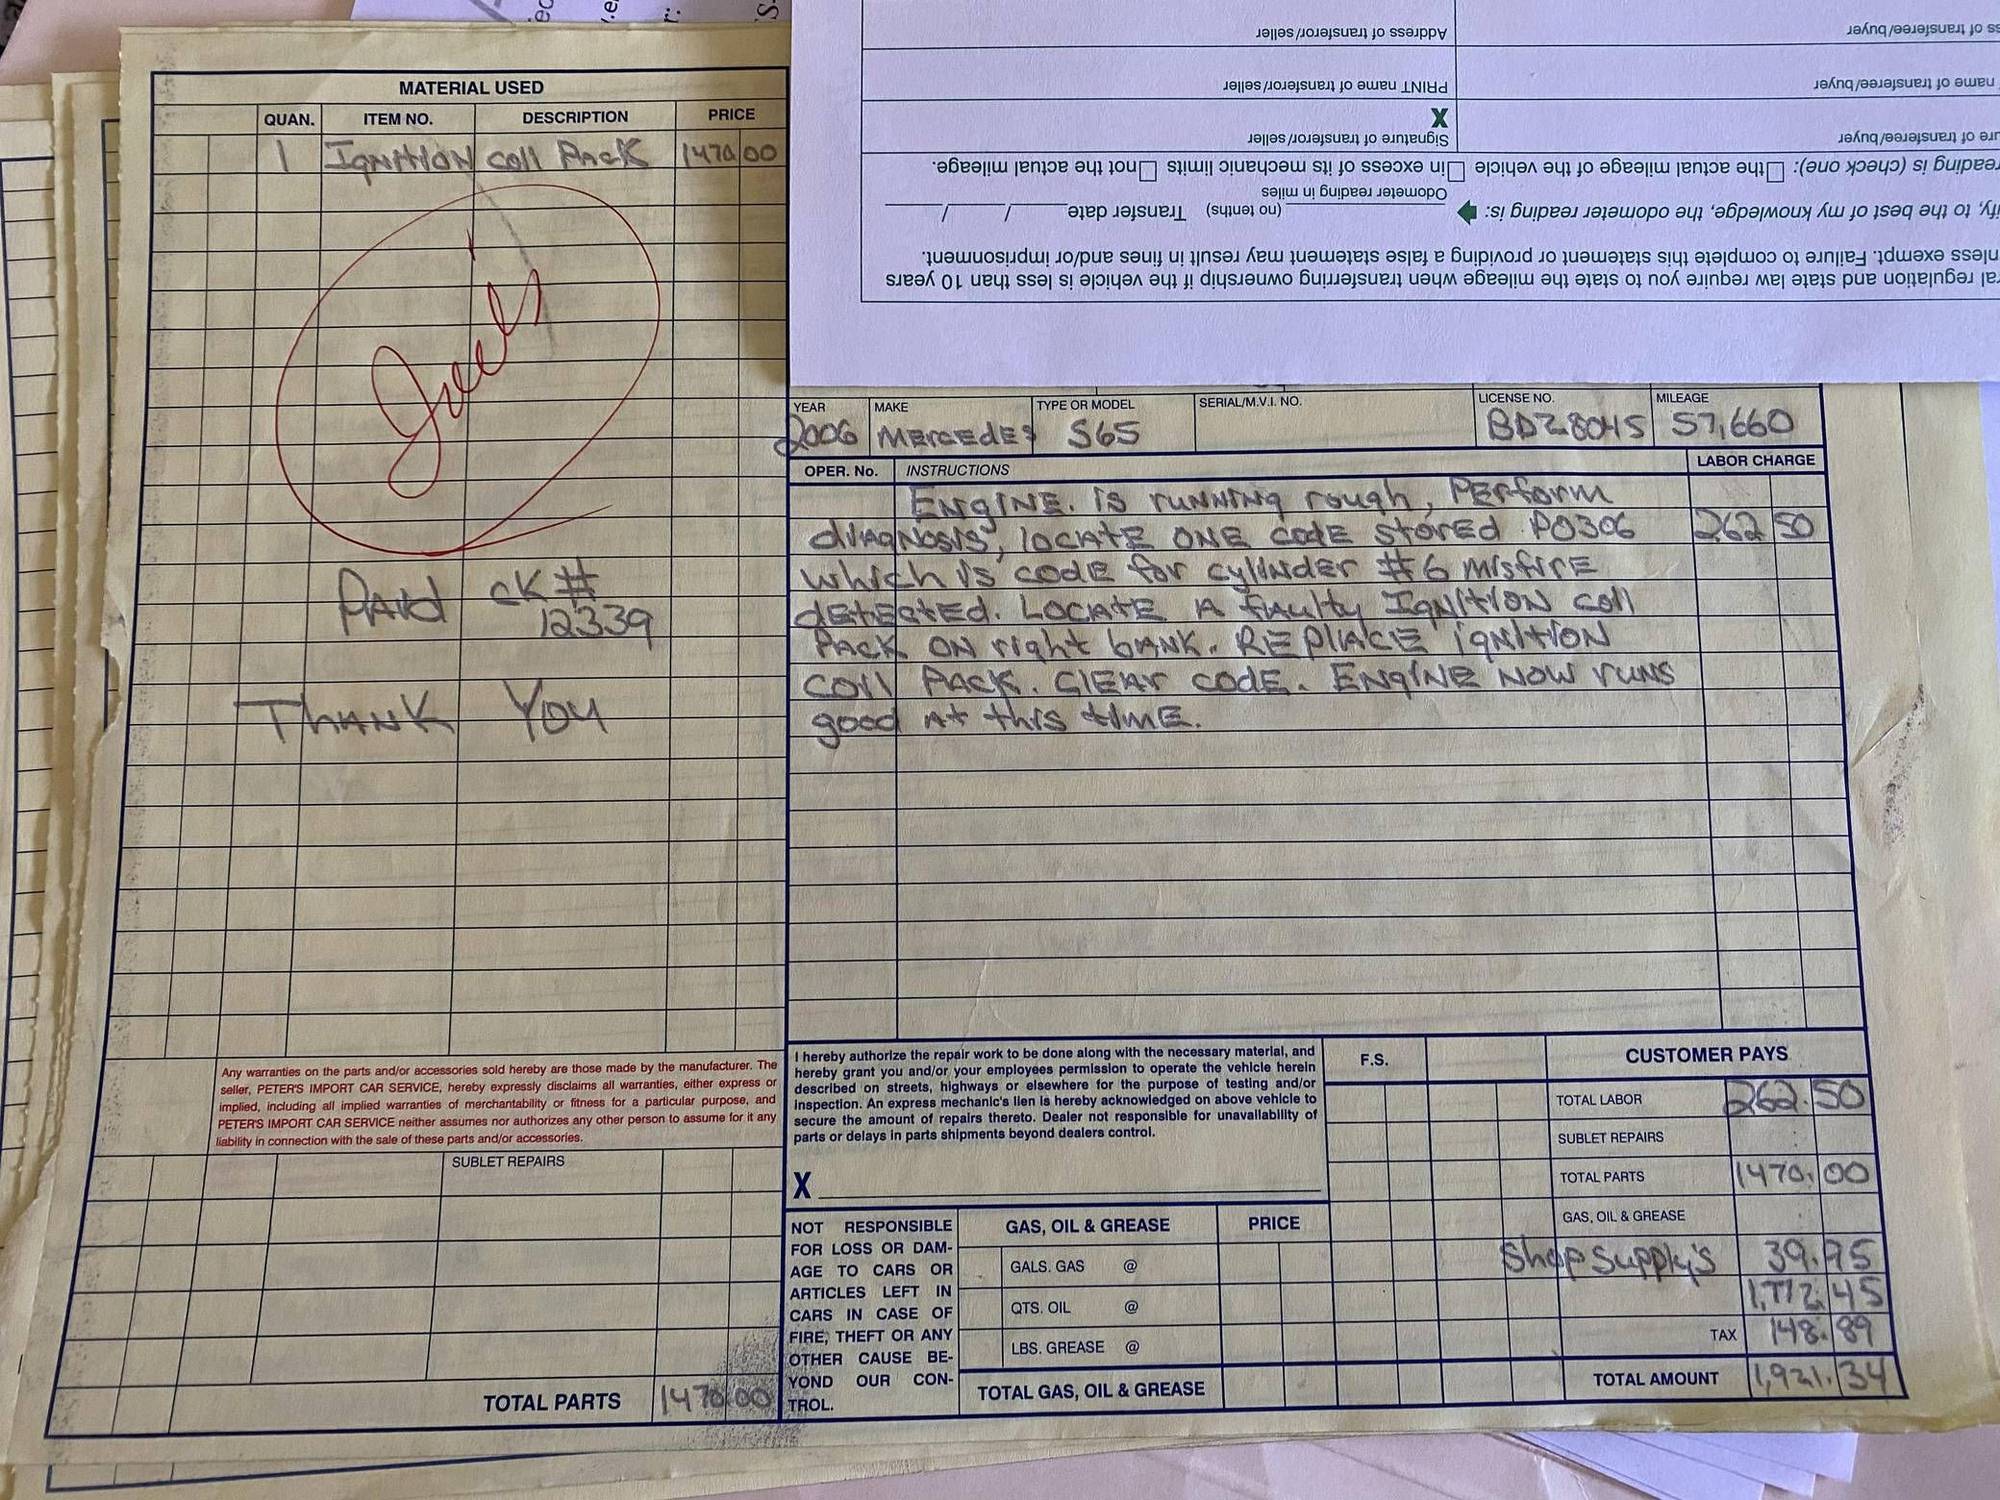 MATERIAL USED
QUAN. ITEM NO. DESCRIPTION PRICE
1 Ignition coil Pack 1470 00
Paid ck#
12339
Thank You
Any warranties on the parts and/or accessories sold hereby are those made by the manufacturer. The
seller, PETER'S IMPORT CAR SERVICE, hereby expressly disclaims all warranties, either express or
implied, including all implied warranties of merchantability or fitness for a particular purpose, and
PETER'S IMPORT CAR SERVICE neither assumes nor authorizes any other person to assume for it any
liability in connection with the sale of these parts and/or accessories.
SUBLET REPAIRS
TOTAL PARTS 1470 00
Address of transferor/seller
PRINT name of transferor/seller
X
Signature of transferor/seller
reading is (check one): the actual mileage of the vehicle in excess of its mechanic limits not the actual mileage.
Odometer reading in miles
to the best of my knowledge, the odometer reading is: (no tenths) Transfer date / /
exempt. Failure to complete this statement or providing a false statement may result in fines and/or imprisonment.
regulation and state law require you to state the mileage when transferring ownership if the vehicle is less than 10 years
YEAR MAKE TYPE OR MODEL SERIAL/M.V.I. NO. LICENSE NO. MILEAGE
2006 Mercedes S65 BDZ8045 57,660
OPER. No. INSTRUCTIONS LABOR CHARGE
Engine. is running rough, Perform
diagnosis, locate one code stored P0306 262 50
which is code for cylinder #6 misfire
detected. Locate a faulty Ignition coil
Pack on right bank. Replace ignition
coil Pack. Clear code. Engine now runs
good at this time.
I hereby authorize the repair work to be done along with the necessary material, and
hereby grant you and/or your employees permission to operate the vehicle herein
described on streets, highways or elsewhere for the purpose of testing and/or
inspection. An express mechanic's lien is hereby acknowledged on above vehicle to
secure the amount of repairs thereto. Dealer not responsible for unavailability of
parts or delays in parts shipments beyond dealers control.
X
NOT RESPONSIBLE
FOR LOSS OR DAM-
AGE TO CARS OR
ARTICLES LEFT IN
CARS IN CASE OF
FIRE, THEFT OR ANY
OTHER CAUSE BE-
YOND OUR CON-
TROL.
GAS, OIL & GREASE PRICE
GALS. GAS @
QTS. OIL @
LBS. GREASE @
TOTAL GAS, OIL & GREASE
F.S. CUSTOMER PAYS
TOTAL LABOR 262.50
SUBLET REPAIRS
TOTAL PARTS 1470.00
GAS, OIL & GREASE
Shop Supply's 39.95
1,772.45
TAX 148.89
TOTAL AMOUNT 1,921.34